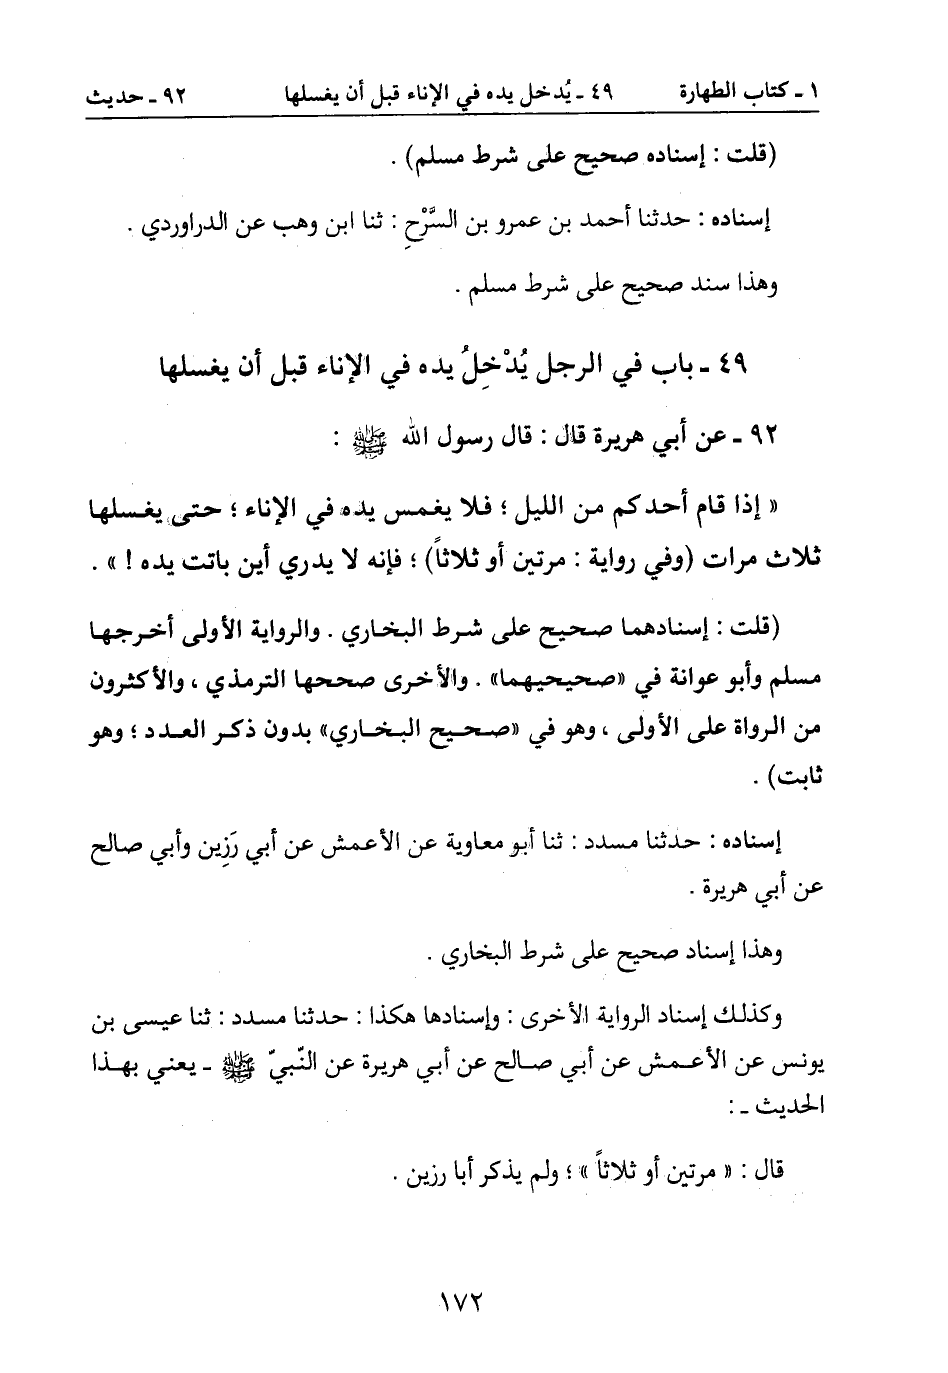 ١ ـ كتاب الطهارة ٤٩ ـ يُدخل يده في الإناء قبل أن يغسلها ٩٢ ـ حديث
(قلت : إسناده صحيح على شرط مسلم) .
إسناده : حدثنا أحمد بن عمرو بن السَّرْحِ : ثنا ابن وهب عن الدراوردي .
وهذا سند صحيح على شرط مسلم .
٤٩ ـ باب في الرجل يُدْخِلُ يده في الإناء قبل أن يغسلها
٩٢ ـ عن أبي هريرة قال : قال رسول الله ﷺ :
« إذا قام أحدكم من الليل ؛ فلا يغمس يده في الإناء ؛ حتى يغسلها
ثلاث مرات (وفي رواية : مرتين أو ثلاثاً) ؛ فإنه لا يدري أين باتت يده ! » .
(قلت : إسنادهما صحيح على شرط البخاري . والرواية الأولى أخرجها
مسلم وأبو عوانة في «صحيحيهما» . والأخرى صححها الترمذي ، والأكثرون
من الرواة على الأولى ، وهو في «صحيح البخاري» بدون ذكر العدد ؛ وهو
ثابت) .
إسناده : حدثنا مسدد : ثنا أبو معاوية عن الأعمش عن أبي رَزِين وأبي صالح
عن أبي هريرة .
وهذا إسناد صحيح على شرط البخاري .
وكذلك إسناد الرواية الأخرى : وإسنادها هكذا : حدثنا مسدد : ثنا عيسى بن
يونس عن الأعمش عن أبي صالح عن أبي هريرة عن النّبيّ ﷺ ـ يعني بهذا
الحديث ـ :
قال : « مرتين أو ثلاثاً » ؛ ولم يذكر أبا رزين .
١٧٢